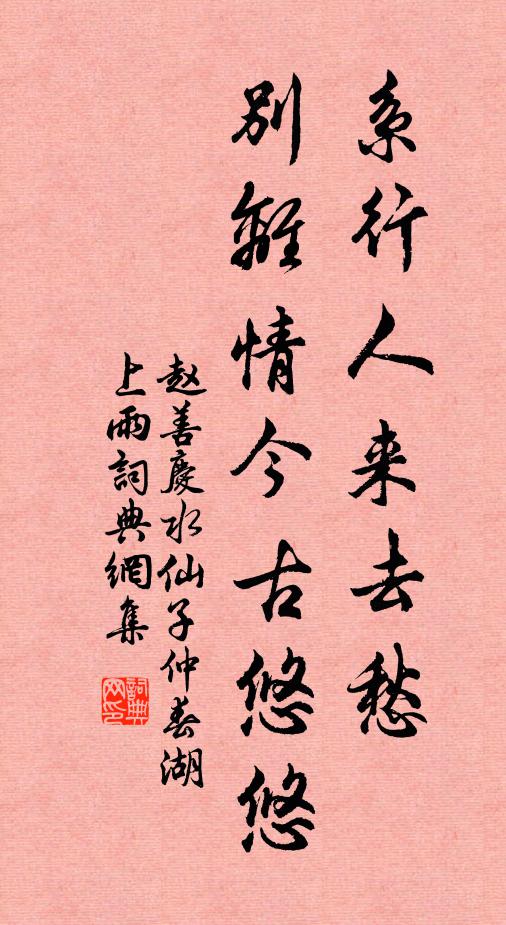 系行人来去愁
别離情今古悠悠
赵善慶水仙子仲春湖
上雨詞典網集
詞典網印